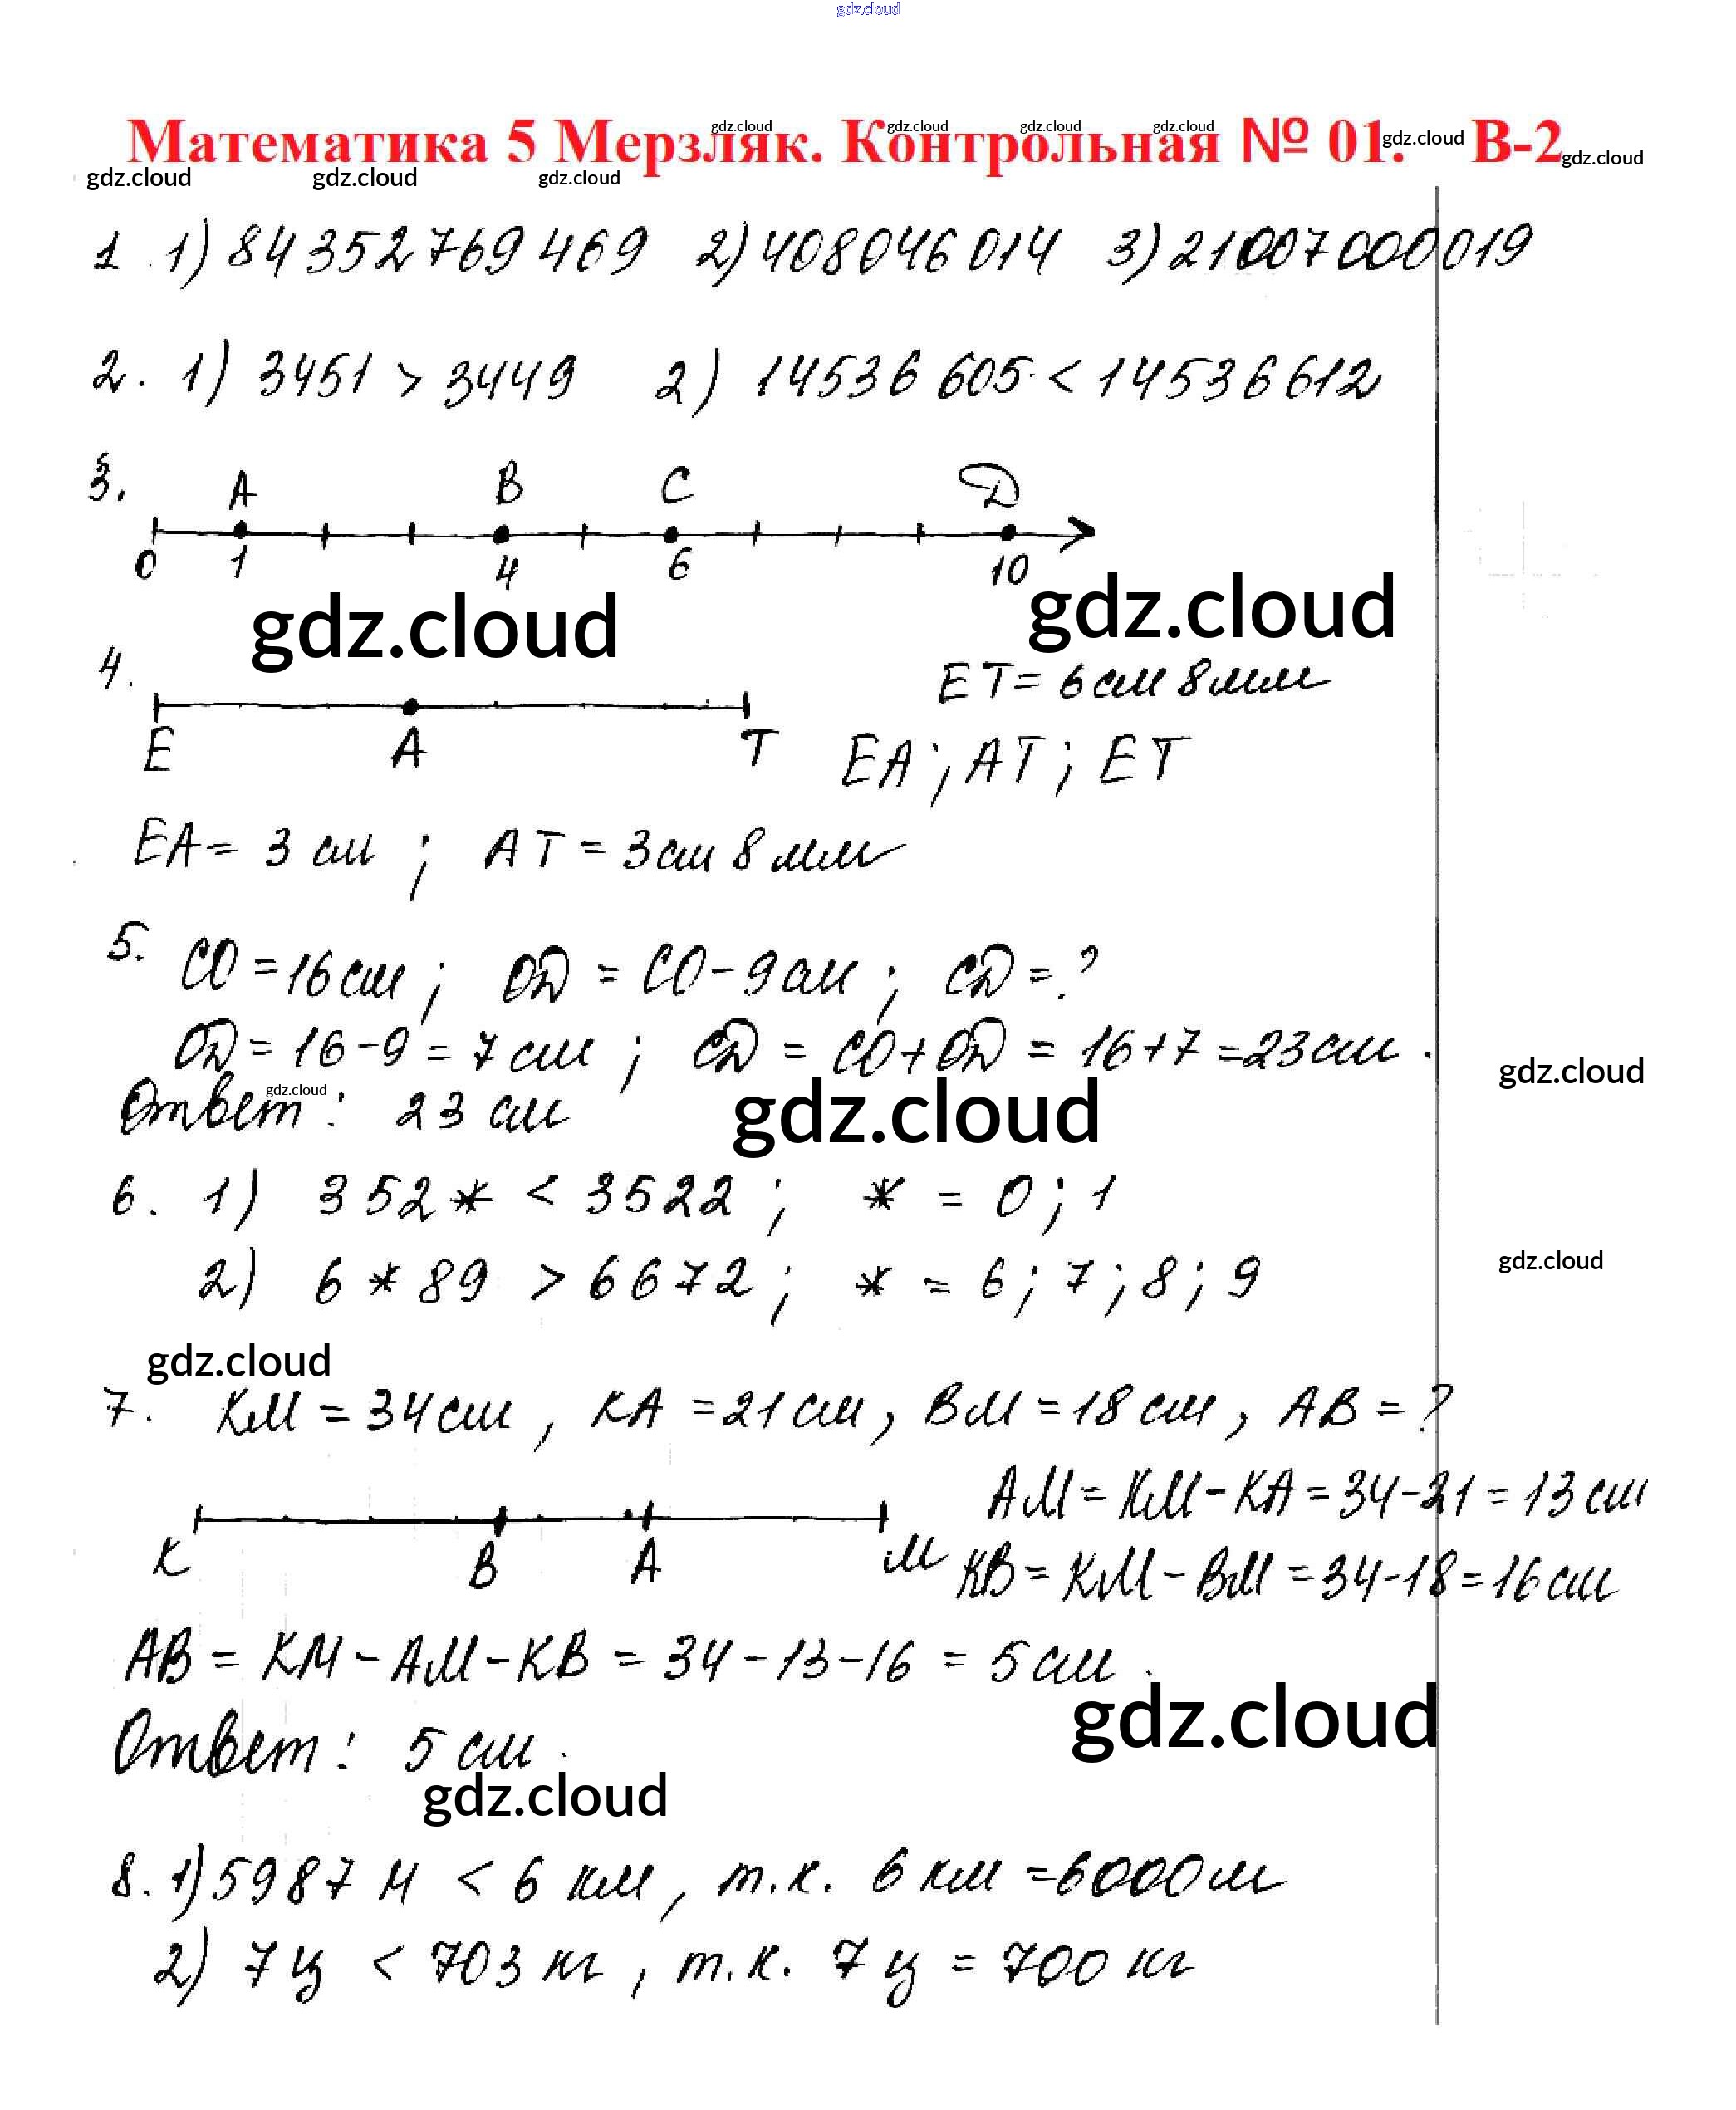 gdz.cloud
Математика 5 Мерзляк. Контрольная № 01. В-2
gdz.cloud gdz.cloud gdz.cloud gdz.cloud gdz.cloud gdz.cloud
gdz.cloud gdz.cloud gdz.cloud
1. 1) 84 352 769 469 2) 408 046 014 3) 21 007 000 019
2. 1) 3451 > 3449 2) 14 536 605 < 14 536 612
3. A B C D
0 1 4 6 10
gdz.cloud gdz.cloud
4. ET = 6 см 8 мм
E A T EA; AT; ET
EA = 3 см; AT = 3 см 8 мм
5. CO = 16 см; OD = CO - 9 см; CD = ?
OD = 16 - 9 = 7 см; CD = CO + OD = 16 + 7 = 23 см.
gdz.cloud
gdz.cloud
Ответ: 23 см
gdz.cloud
6. 1) 352* < 3522; * = 0; 1
2) 6*89 > 6672; * = 6; 7; 8; 9
gdz.cloud
gdz.cloud
7. KM = 34 см, KA = 21 см, BM = 18 см, AB = ?
AM = KM - KA = 34 - 21 = 13 см
K B A M
KB = KM - BM = 34 - 18 = 16 см
AB = KM - AM - KB = 34 - 13 - 16 = 5 см.
gdz.cloud
Ответ: 5 см.
gdz.cloud
8. 1) 5987 м < 6 км, т.к. 6 км = 6000 м
2) 7 ц < 703 кг, т.к. 7 ц = 700 кг